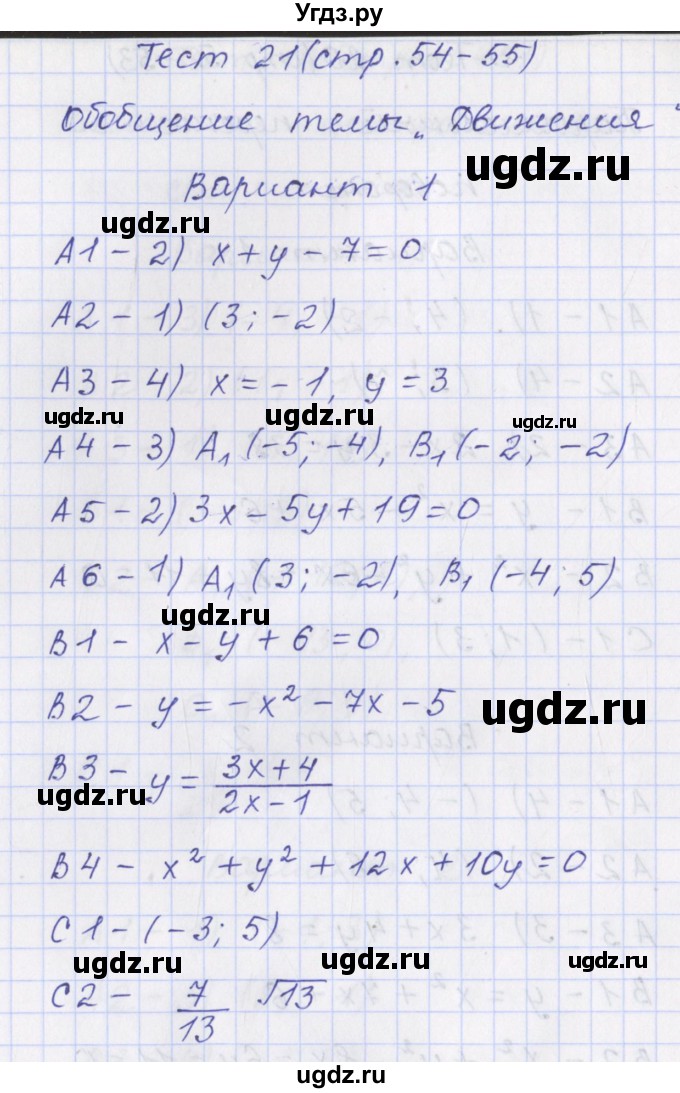 Угдз.ру
Тест 21 (стр. 54-55)
Обобщение темы „Движения“
ugdz.ru
Вариант 1
ugdz.ru
А1 - 2) x + y - 7 = 0
А2 - 1) (3; -2)
А3 - 4) x = -1, y = 3
ugdz.ru ugdz.ru ugdz.ru
А4 - 3) A₁ (-5; -4), B₁ (-2; -2)
А5 - 2) 3x - 5y + 19 = 0
А6 - 1) A₁ (3; -2), B₁ (-4; 5)
ugdz.ru
В1 - x - y + 6 = 0
В2 - y = -x² - 7x - 5
ugdz.ru
В3 - y = (3x + 4)/(2x - 1)
ugdz.ru
В4 - x² + y² + 12x + 10y = 0
С1 - (-3; 5)
ugdz.ru ugdz.ru ugdz.ru
С2 - 7/13 √13
ugdz.ru